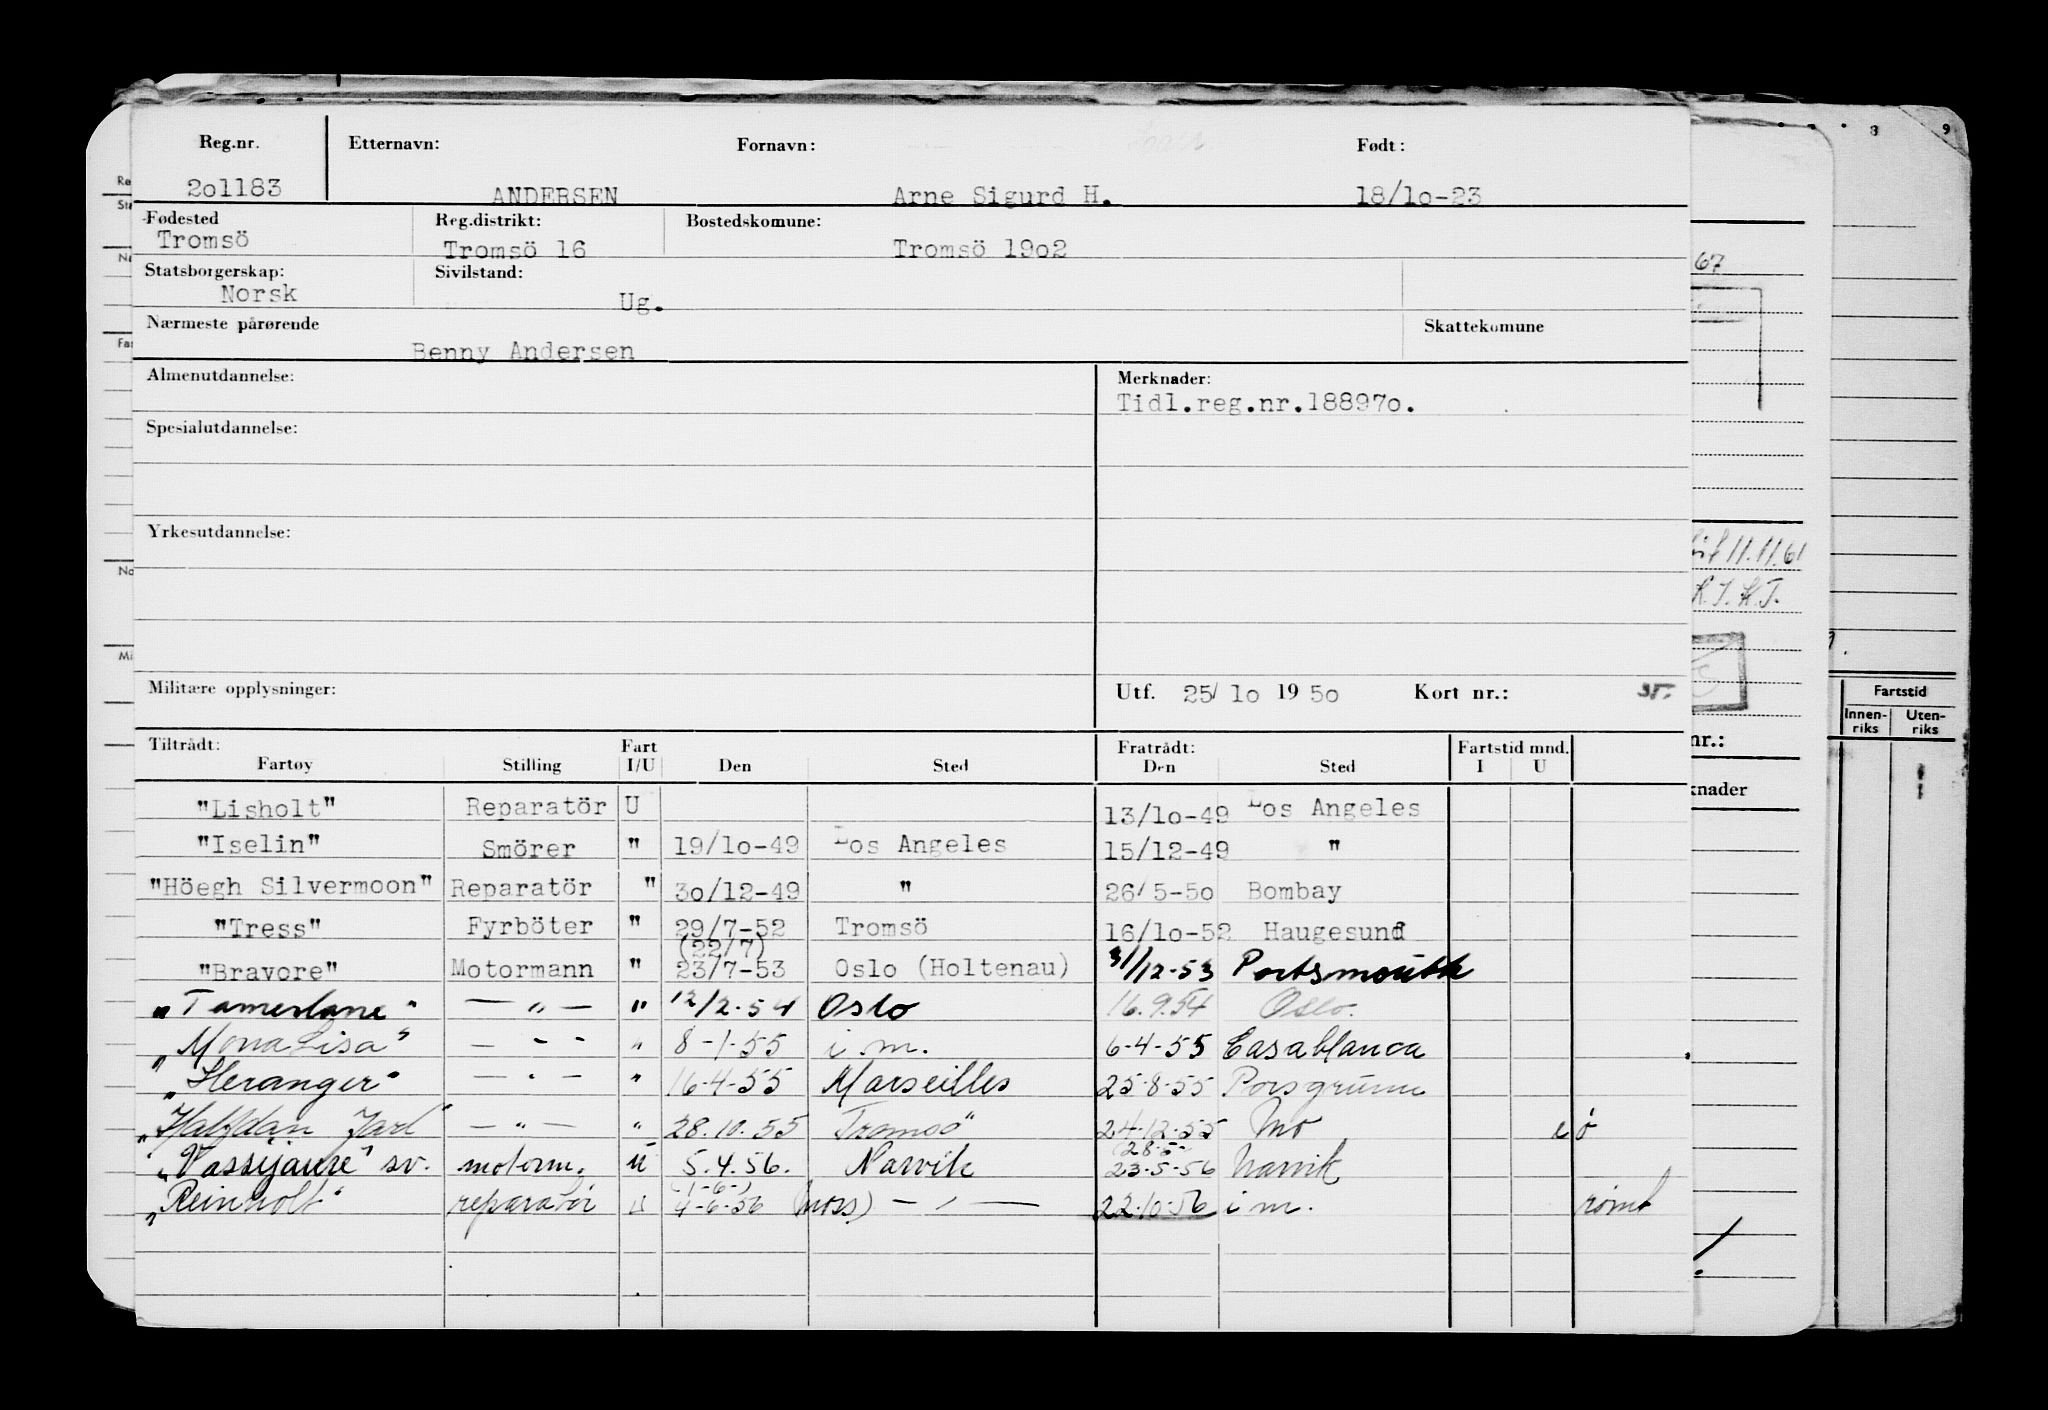 Reg.nr. Etternavn: Fornavn: Født:
2o1183 ANDERSEN Arne Sigurd H. 18/1o-23
Fødested Reg.distrikt: Bostedskomune:
Tromsö Tromsö 16 Tromsö 19o2
Statsborgerskap: Sivilstand:
Norsk Ug.
Nærmeste pårørende Skattekomune
Benny Andersen
Almenutdannelse: Merknader:
Tidl.reg.nr.18897o.
Spesialutdannelse:
Yrkesutdannelse:
Militære opplysninger: Utf. 25/ 1o 19 5o Kort nr.:
Tiltrådt: Fart Fratrådt: Fartstid mnd.
Fartøy Stilling I/U Den Sted Den Sted I U
"Lisholt" Reparatör U 13/1o-49 Los Angeles
"Iselin" Smörer " 19/1o-49 Los Angeles 15/12-49 "
"Höegh Silvermoon" Reparatör " 3o/12-49 " 26/5-5o Bombay
"Tress" Fyrböter " 29/7-52 Tromsö 16/1o-52 Haugesund
(22/7)
"Bravore" Motormann " 23/7-53 Oslo (Holtenau) 31/12-53 Portsmouth
"Tamerlane" — " — " 12/2-54 Oslo 16.9.54 Oslo.
"Mona Lisa" — " — " 8-1-55 i.m. 6-4-55 Casablanca
"Heranger" — " — " 16-4-55 Marseilles 25-8-55 Porsgrunn
"Halfdan Jarl" — " — " 28.10.55 Tromsö 24-12-55 Mo
(28-5-)
"Vassijaure" sv. motorm. U 5.4.56. Narvik 23-5-56 Narvik
(1-6-)
"Reinholt" reparatör U 4-6-56 (Moss) — " — 22-10-56 i m. rømt
67
11.11.61
nr.:
knader
8 9
Fartstid
Innen-riks Uten-riks